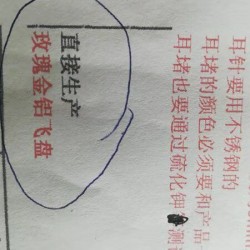 耳针要用不锈钢的
耳堵的颜色必须要和产品
耳堵也要通过硫化钾测
直接生产
玫瑰金铝飞盘